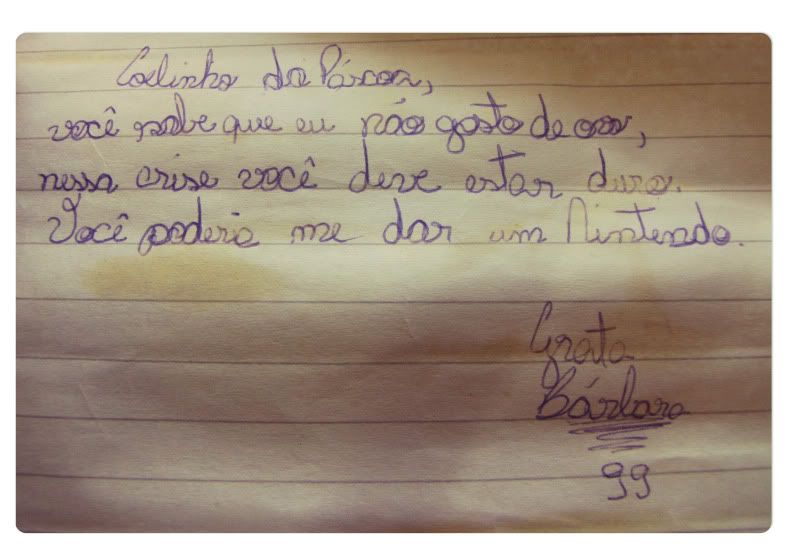 Coelinho da Páscoa,
você sabe que eu não gosto de ovo,
nessa crise você deve estar duro.
Você poderia me dar um Nintendo.
Grata
Bárbara
99